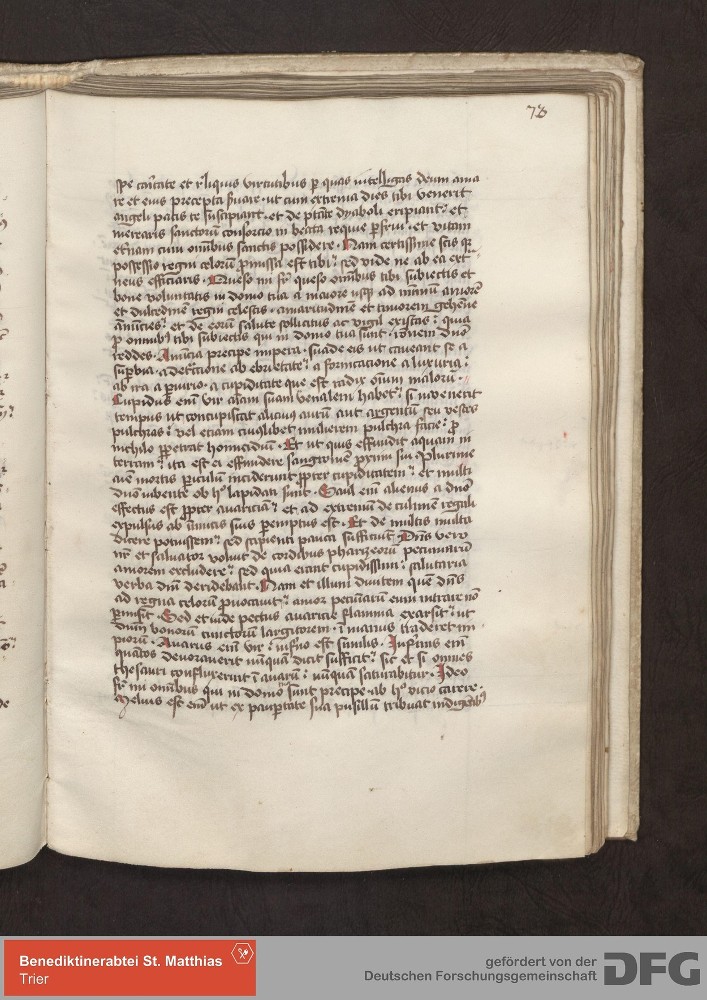 73
spe caritate et reliquis virtutibus per quas intelligas deum ama
re et eius precepta seruare · ut cum extrema dies tibi venerit
angeli pacis te suscipiant · et de ptate dyaboli eripiant : et
merearis sanctorum consorcio in beata requie perfrui · et vitam
eternam cum omnibus sanctis possidere · Nam certissime scis quia
possessio regni celorum promissa est tibi : sed vide ne ab ea ext
neus efficiaris · Queso mi fr queso omnibus tibi subiectis et
bone voluntatis in domo tua a maiore usque ad minimum amorem
et dulcedinem regni celestis · amaritudinem et timorem gehenne
annuncies : et de eorum salute sollicitus ac vigil existas : quia
pro omnibus tibi subiectis qui in domo tua sunt · rationem domino
reddes · Annuncia precipe impera · suade eis ut caueant se a
superbia · a detractione ab ebrietate : a fornicatione a luxuria :
ab ira a periurio · a cupiditate que est radix omnium malorum ·
Cupidus enim vir animam suam venalem habet : si inuenerit
tempus ut concupiscat alicuius aurum aut argentum seu vestes
pulchras : vel etiam cuiuslibet mulierem pulchra facie : pro
nichilo perpetrat homicidium · Et ut quis effundit aquam in
terram : ita est ei effundere sanguinem proximi sui Plurime
autem mortis periculum inciderunt propter cupiditatem : et multi
domino iubente ob hoc lapidati sunt · Saul enim alienus a domino
effectus est propter auariciam : et ad extremum de culmine regali
expulsus ab inimicis suis peremptus est · Et de multis multa
dicere potuissem : sed sapienti pauca sufficiunt Dominus vero
noster et saluator voluit de cordibus phariseorum pecuniarum
amorem excludere : sed quia erant cupidissimi : salutaria
verba domini deridebant · Nam et illum diuitem quem dominus
ad regna celorum prouocauit : amor pecuniarum eum intrare non
permisit · Sed et iude pectus auaricie flamma exarsit : ut
dominum bonorum cunctorum largitorem · in manus traderet im
piorum · Auarus enim vir : inferno est similis · Infernus enim
quantos deuorauerit nunquam dicit sufficit : sic et si omnes
thesauri confluxerint in auarum : nunquam saturabitur · Ideo
fr mi omnibus qui in domo tua sunt precipe · ab hoc vicio carere ·
Melius est enim ut ex paupertate sua pusillum tribuat indigentibus
Benediktinerabtei St. Matthias
Trier
gefördert von der
Deutschen Forschungsgemeinschaft
DFG